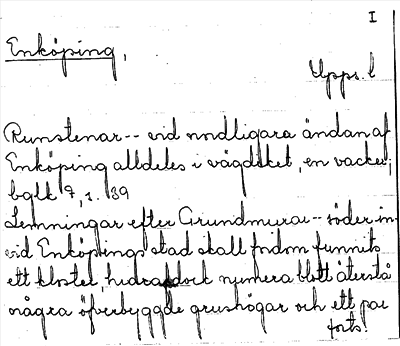 I
Enköping,
Upps. l
Runstenar -- vid nordligara ändan af
Enköping alldeles i vägdiket, en vacker;
bglk 9, s. 39
Lemningar efter Grundmurar -- söder in-
vid Enköpings stad skall fordom funnits
ett kloster, hvaraf dock numera blott återstå
några öfverbyggde grushögar och ett par
forts.